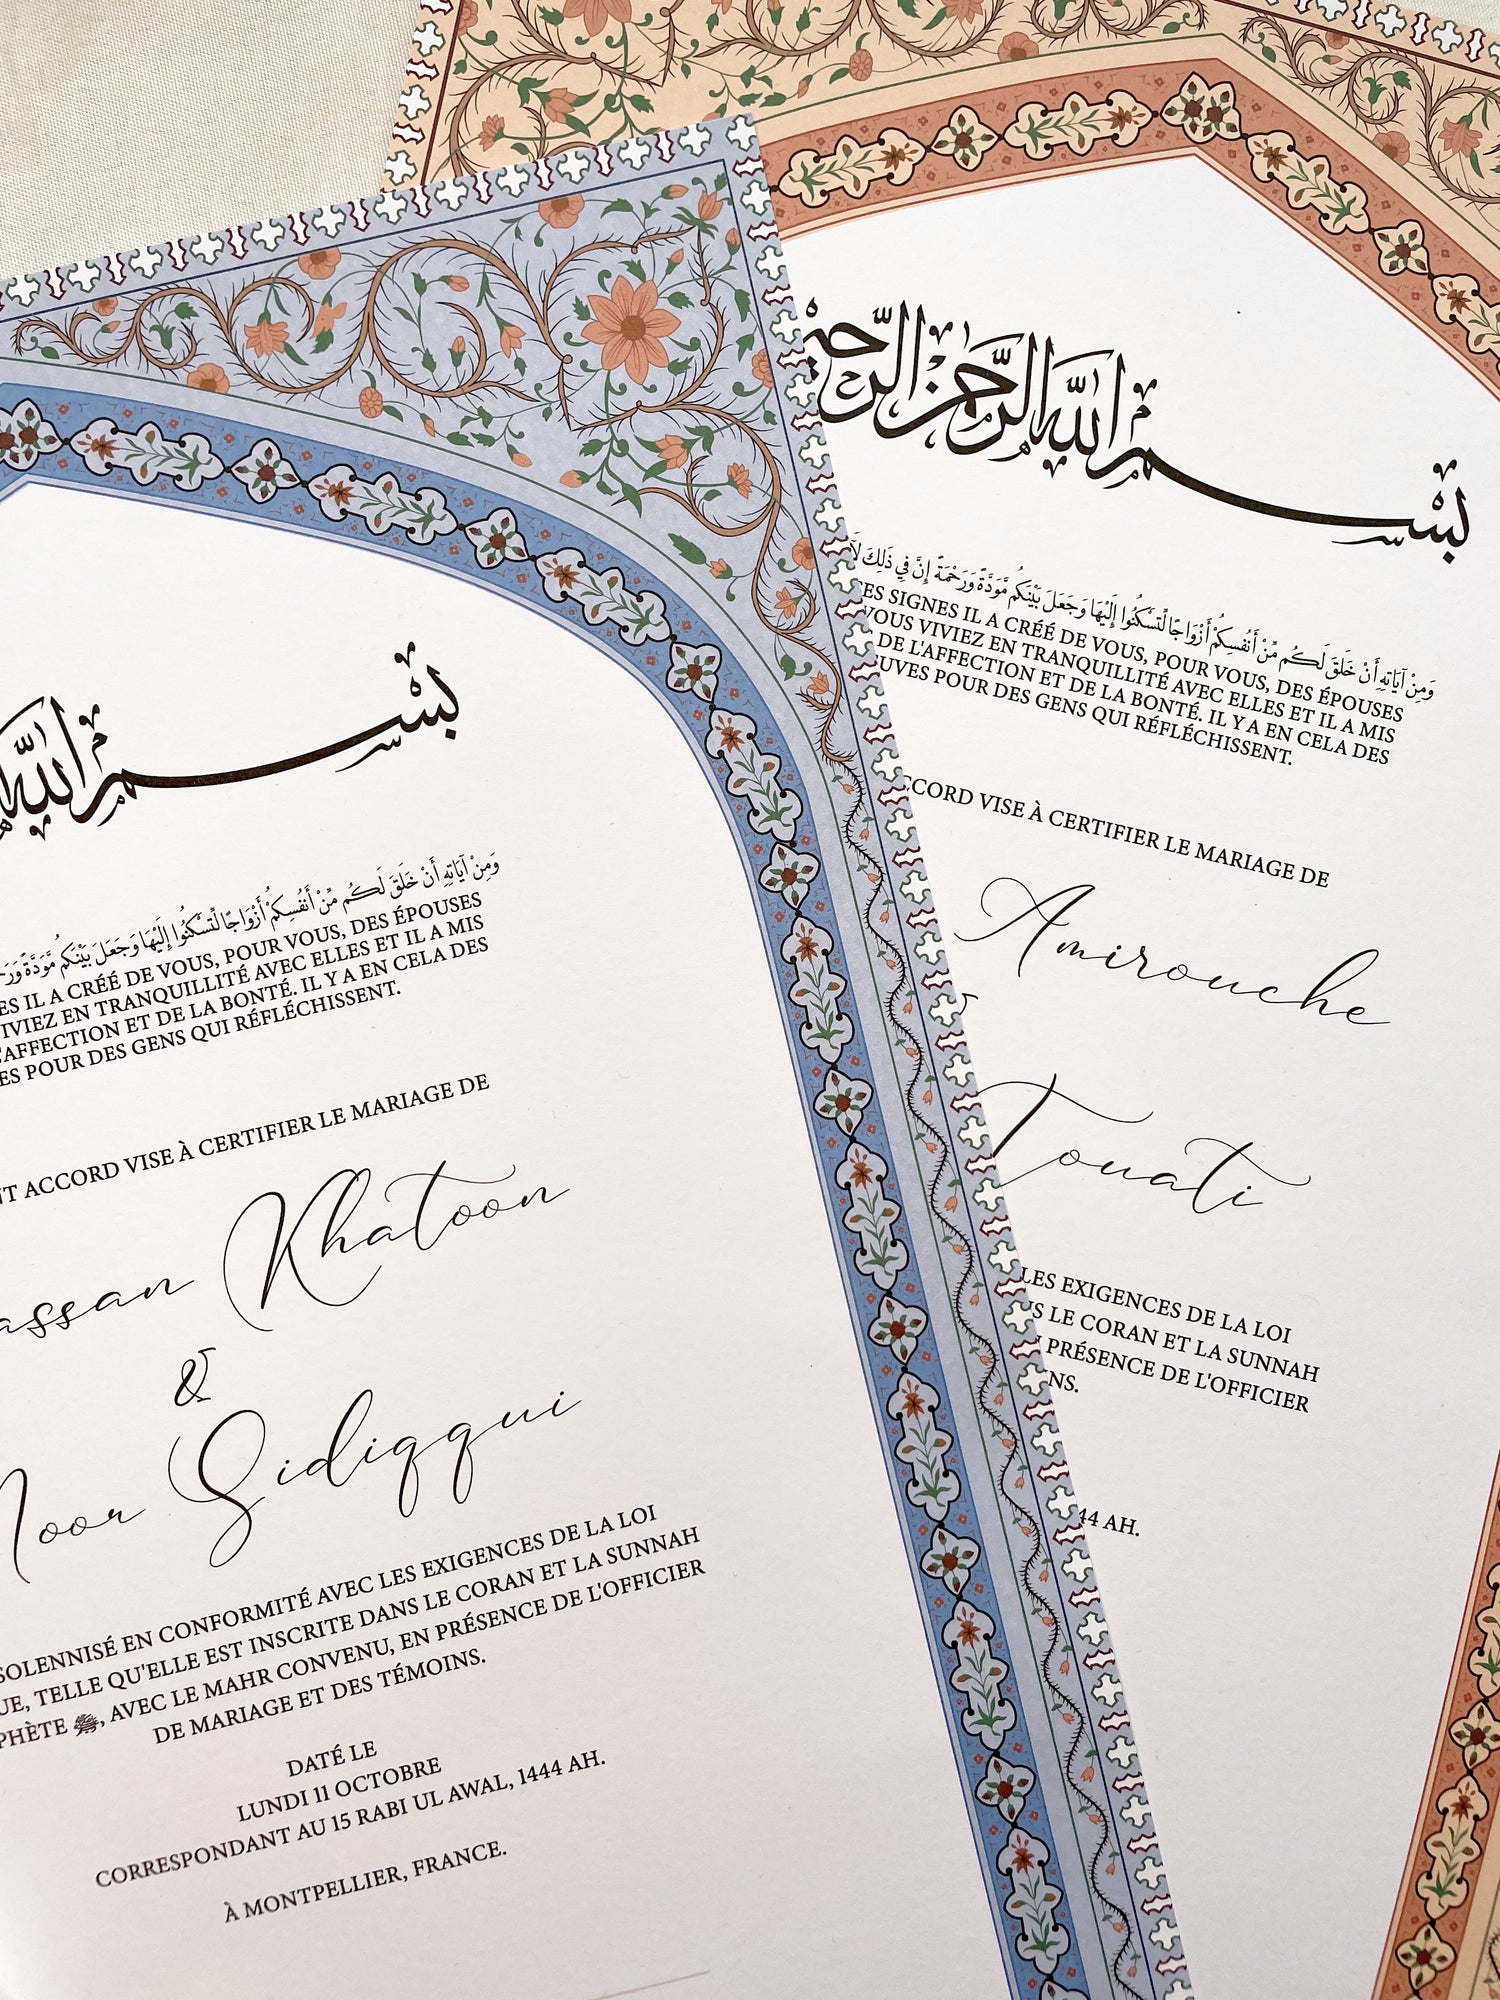 بِسْمِ اللَّهِ
وَمِنْ آيَاتِهِ أَنْ خَلَقَ لَكُم مِّنْ أَنفُسِكُمْ أَزْوَاجًا لِّتَسْكُنُوا إِلَيْهَا وَجَعَلَ بَيْنَكُم مَّوَدَّةً
IL A CRÉÉ DE VOUS, POUR VOUS, DES ÉPOUSES
VIVIEZ EN TRANQUILLITÉ AVEC ELLES ET IL A MIS
L'AFFECTION ET DE LA BONTÉ. IL Y A EN CELA DES
POUR DES GENS QUI RÉFLÉCHISSENT.
ACCORD VISE À CERTIFIER LE MARIAGE DE
Khatoon
&
Noor Sidiqqui
SOLENNISÉ EN CONFORMITÉ AVEC LES EXIGENCES DE LA LOI
TELLE QU'ELLE EST INSCRITE DANS LE CORAN ET LA SUNNAH
ﷺ, AVEC LE MAHR CONVENU, EN PRÉSENCE DE L'OFFICIER
DE MARIAGE ET DES TÉMOINS.
DATÉ LE
LUNDI 11 OCTOBRE
CORRESPONDANT AU 15 RABI UL AWAL, 1444 AH.
À MONTPELLIER, FRANCE.
بِسْمِ اللَّهِ الرَّحْمَنِ الرَّحِيمِ
وَمِنْ آيَاتِهِ أَنْ خَلَقَ لَكُم مِّنْ أَنفُسِكُمْ أَزْوَاجًا لِّتَسْكُنُوا إِلَيْهَا وَجَعَلَ بَيْنَكُم مَّوَدَّةً وَرَحْمَةً إِنَّ فِي ذَلِكَ
SIGNES IL A CRÉÉ DE VOUS, POUR VOUS, DES ÉPOUSES
VOUS VIVIEZ EN TRANQUILLITÉ AVEC ELLES ET IL A MIS
DE L'AFFECTION ET DE LA BONTÉ. IL Y A EN CELA DES
POUR DES GENS QUI RÉFLÉCHISSENT.
ACCORD VISE À CERTIFIER LE MARIAGE DE
Amirouche
&
Touati
LES EXIGENCES DE LA LOI
LE CORAN ET LA SUNNAH
PRÉSENCE DE L'OFFICIER
AH.